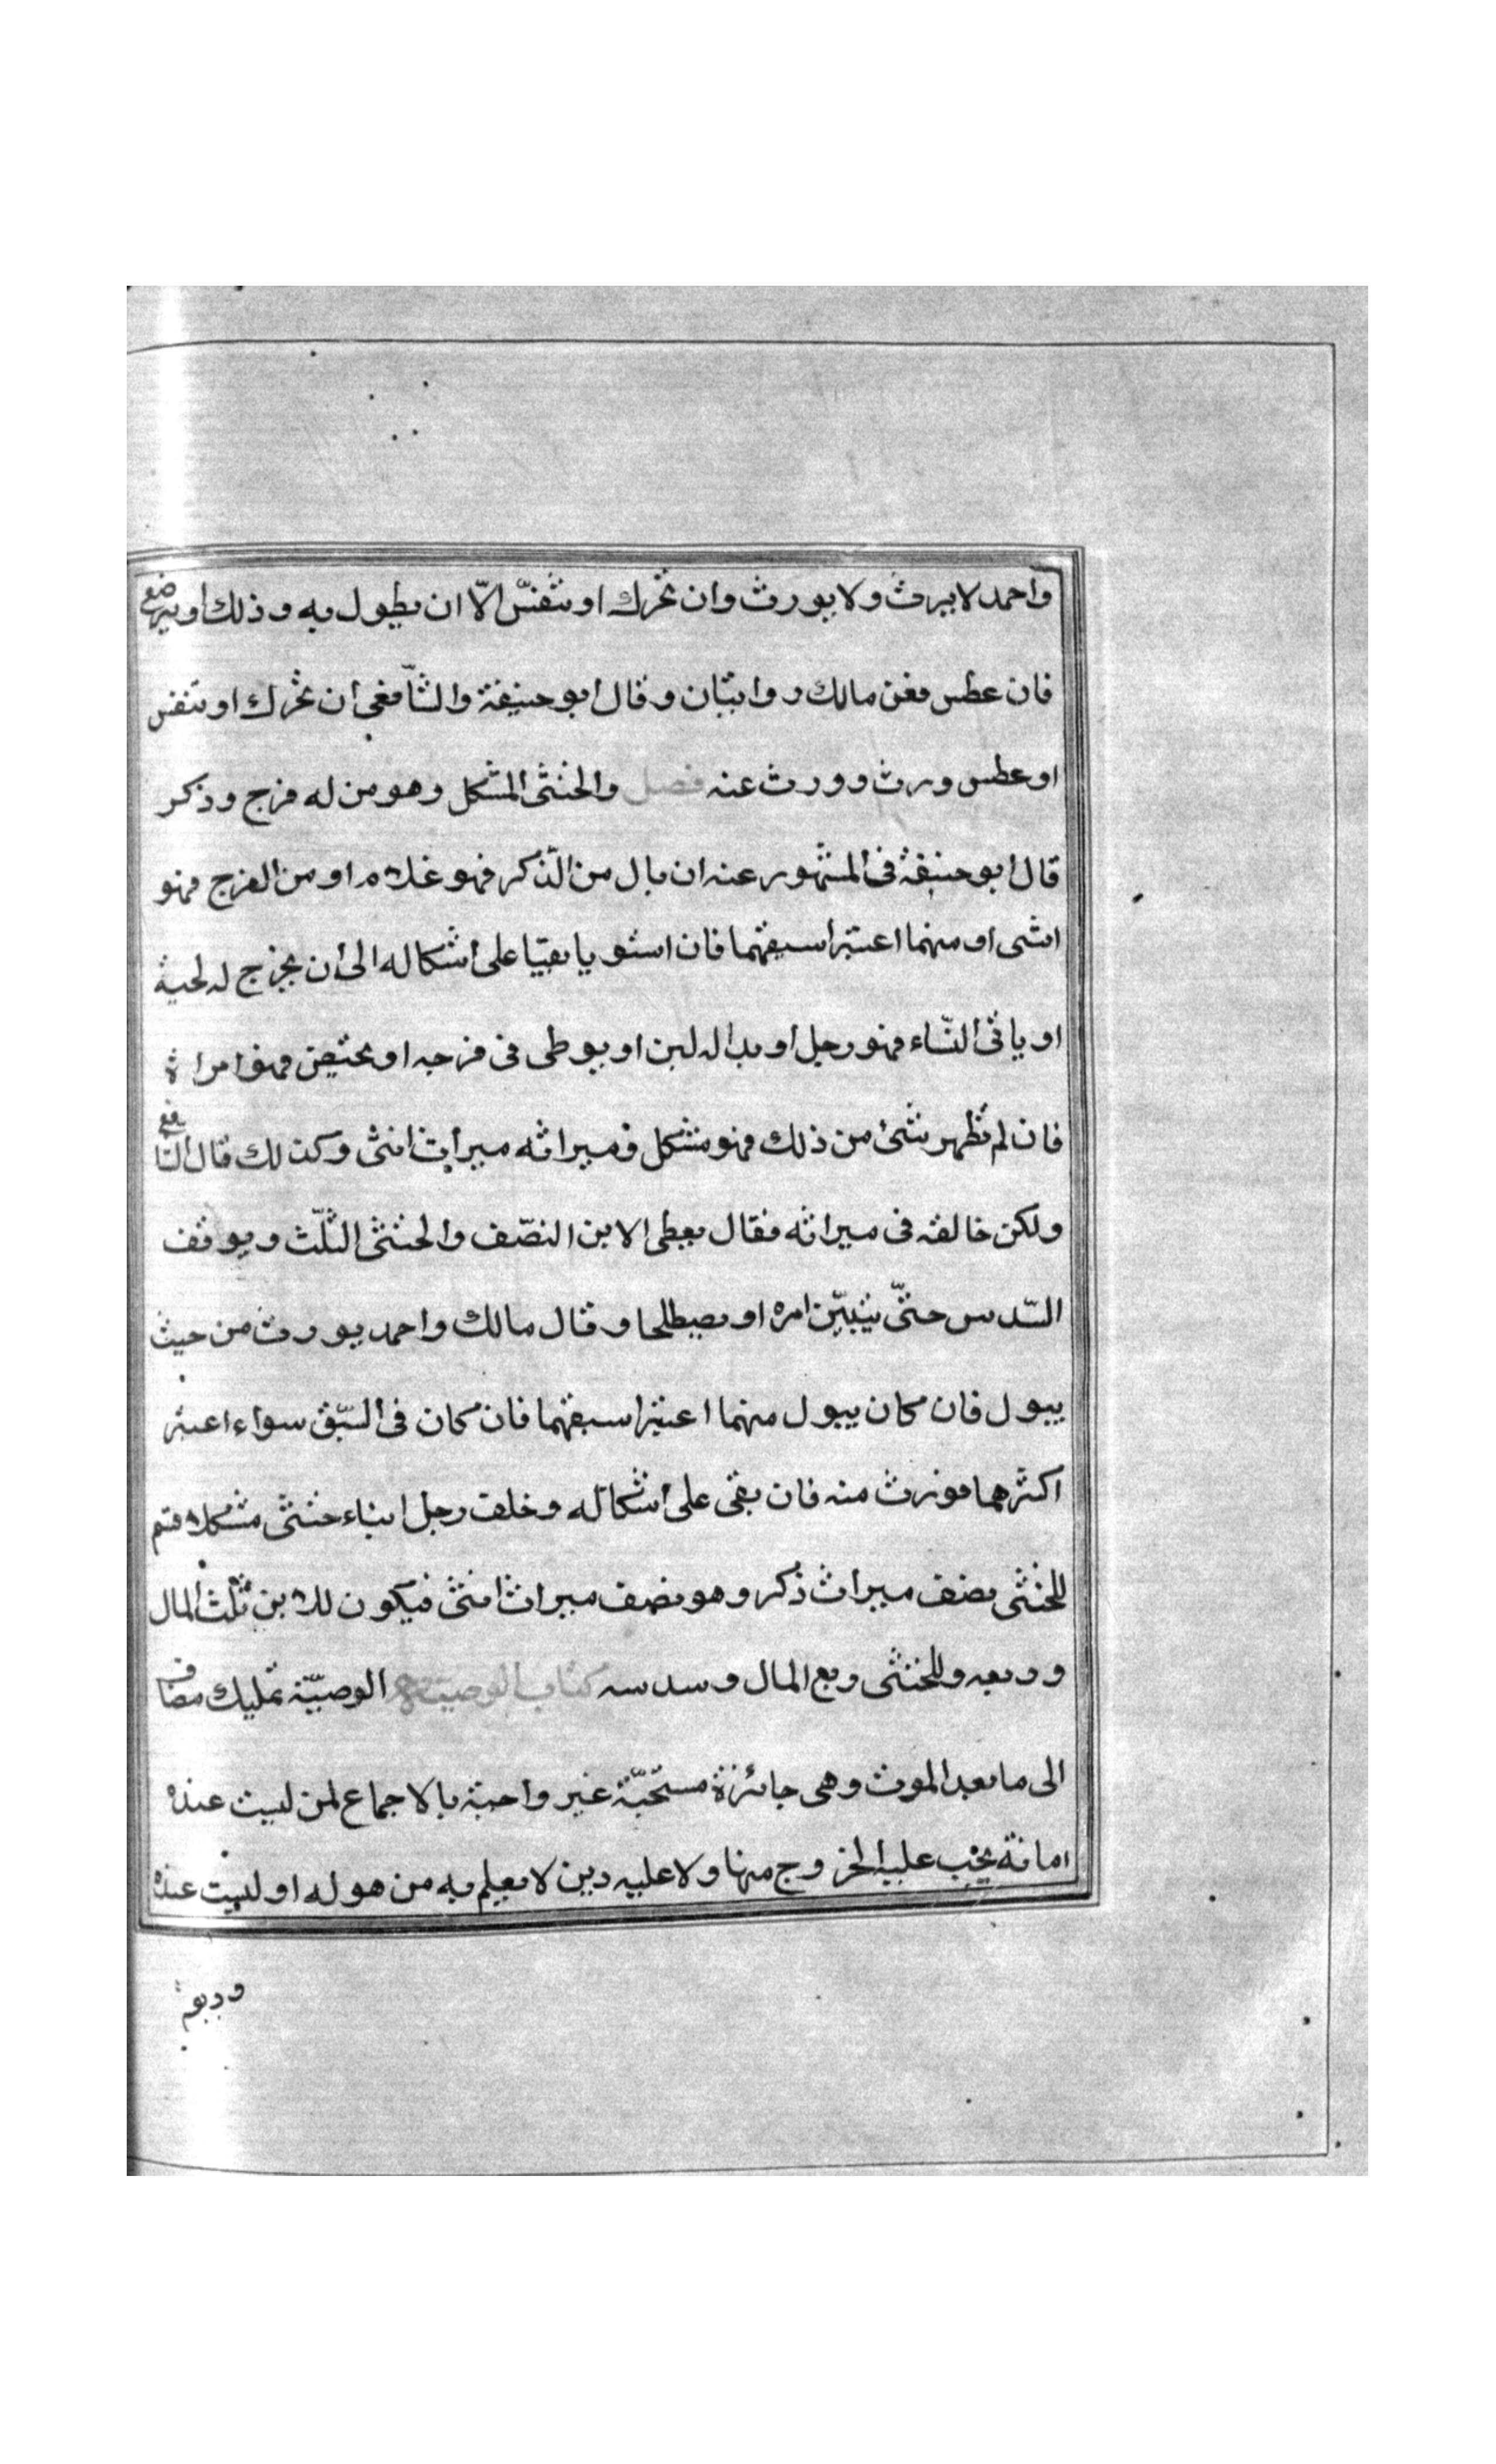 واحمد لا يرث ولا يورث وان تحرك او تنفّس الّا ان يطول به وذلك او يرضع
فان عطس فعن مالك روايتان وقال ابو حنيفة والشّافعي ان تحرك او تنفس
او عطس ورث وورث عنه فصل والخنثى المشكل وهو من له فرج وذكر
قال ابو حنيفة في المشهور عنه ان بال من الذّكر فهو غلام او من الفرج فهو
انثى او منهما اعتبر اسبقهما فان استويا بقيا على أشكاله الى أن يخرج له لحية
او ياتى النّساء فهو رجل او بدا له لبن او يوطى في فرجه او يحيض فهو امراة
فان لم تظهر شئ من ذلك فهو مشكل فميراثه ميراث انثى وكذلك قال الشّافعي
ولكن خالفه في ميراثه فقال يعطى الابن النصّف والخنثى الثّلث ويوقف
السّدس حتّى يتبيّن امره او يصطلحا وقال مالك واحمد يورث من حيث
يبول فان كان يبول منهما اعتبر اسبقهما فان كان في السّبق سواء اعتبر
اكثرهما فورث منه فان بقى على أشكاله وخلف رجل ابناء خنثى مشكلا قسم
للخنثى نصف ميراث ذكر وهو نصف ميراث انثى فيكون للابن ثلث المال
وربعه وللخنثى وبع المال وسدسه كتاب الوصية الوصيّة تمليك مضاف
الى ما بعد الموت وهى جائزة مستحبّة غير واجبة بالاجماع لمن ليست عنده
امانة يجب عليه الخروج منها ولا عليه دين لا يعلم به من هو له او ليست عنده